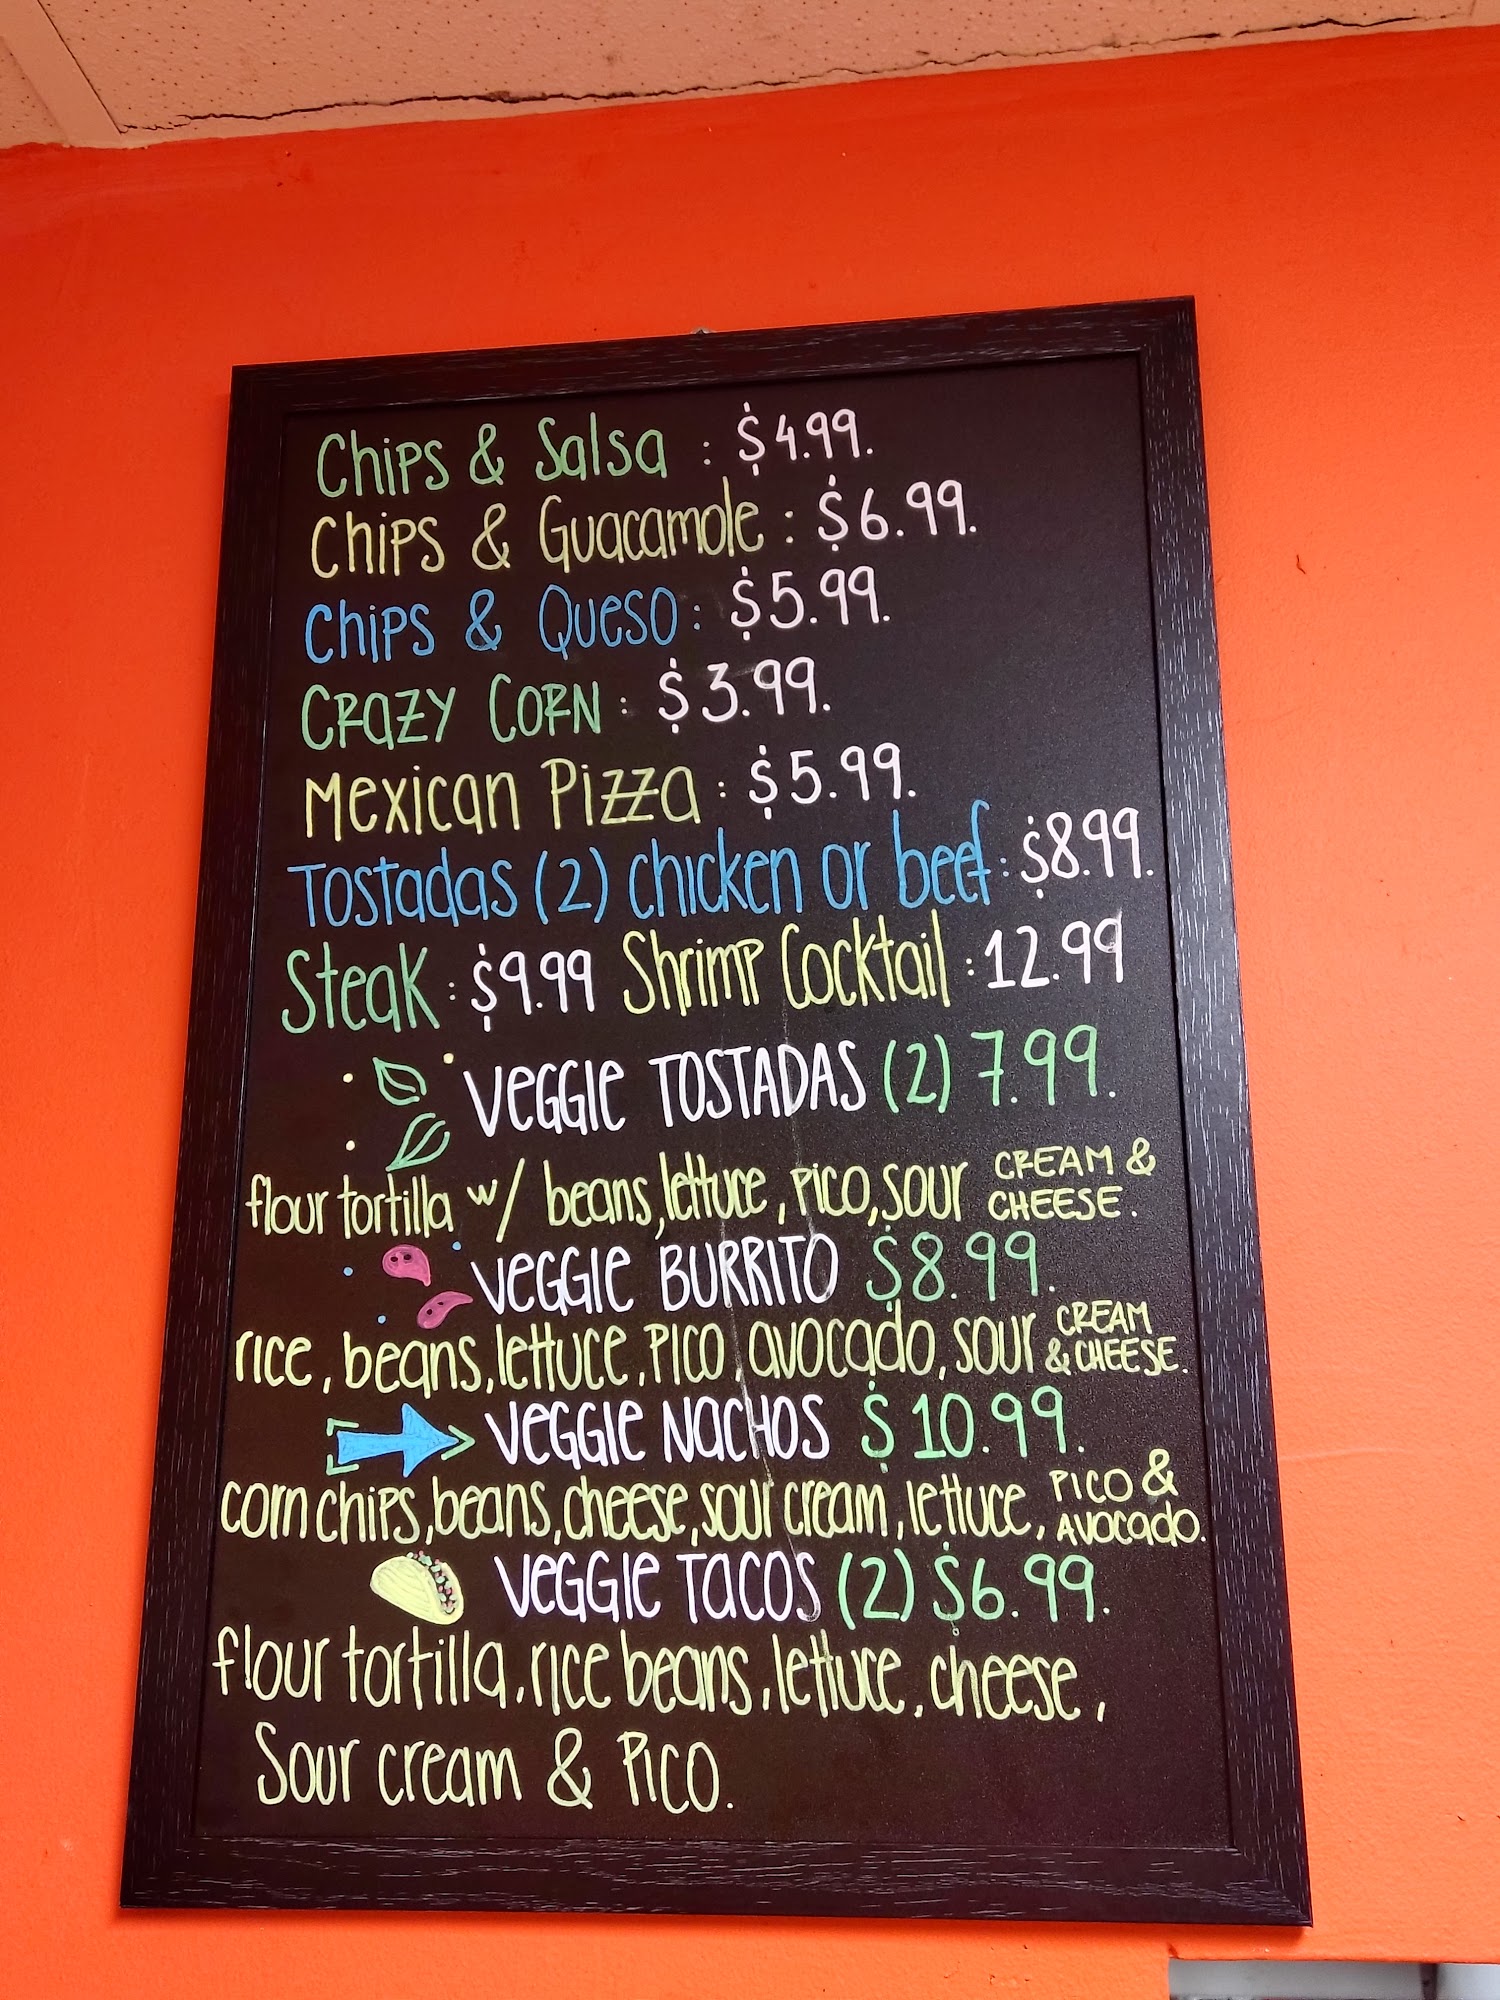 Chips & Salsa : $4.99.
Chips & Guacamole : $6.99.
Chips & Queso : $5.99.
CRAZY CORN : $3.99.
Mexican Pizza : $5.99.
Tostadas (2) chicken or beef : $8.99.
Steak : $9.99 Shrimp Cocktail : 12.99
VEGGIE TOSTADAS (2) 7.99.
flour tortilla w/ beans, lettuce, PICO, sour CREAM & CHEESE.
VEGGIE BURRITO $8.99.
rice, beans, lettuce, PICO, avocado, sour CREAM & CHEESE.
VEGGIE NACHOS $10.99.
corn chips, beans, cheese, sour cream, lettuce, PICO & AVOCADO.
VEGGIE TACOS (2) $6.99.
flour tortilla, rice beans, lettuce, cheese,
Sour cream & PICO.